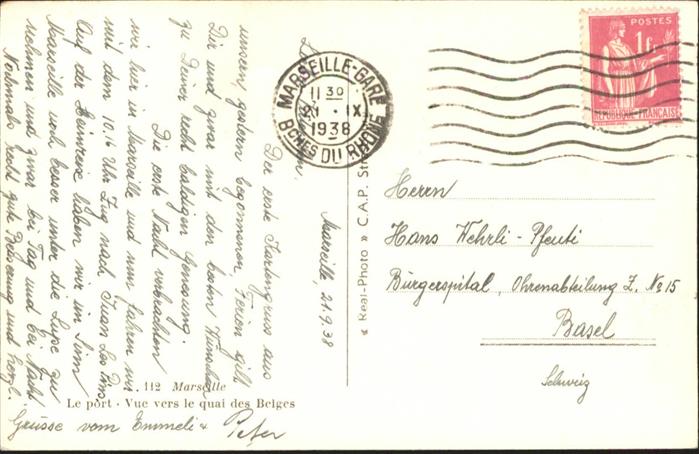 Marseille, 21.9.38
Der erste Kartengruss aus
unsern, gestern begonnenen Ferien gilt
Dir und zwar mit den besten Wünschen
zu Deiner recht baldigen Genesung.
Die erste Nacht verbrachten
wir hier in Marseille und nun fahren wir
mit dem 10.16 Uhr Zug nach Juan Les Pins
Auf der Heimreise haben wir im Sinn
Marseille noch besser unter die Lupe zu
nehmen und zwar bei Tag und bei Nacht
Nochmals recht gute Besserung und herzl.
Grüsse vom Emmeli & Peter
112 Marseille
Le port - Vue vers le quai des Belges
« Real-Photo » C.A.P.
MARSEILLE-GARE
11 30
IX
1938
BCHES DU RHONE
POSTES
1f
REPUBLIQUE FRANÇAISE
Herrn
Hans Wehrli-Pfenti
Bürgerspital, Ohrenabteilung Z. No 15
Basel
Schweiz